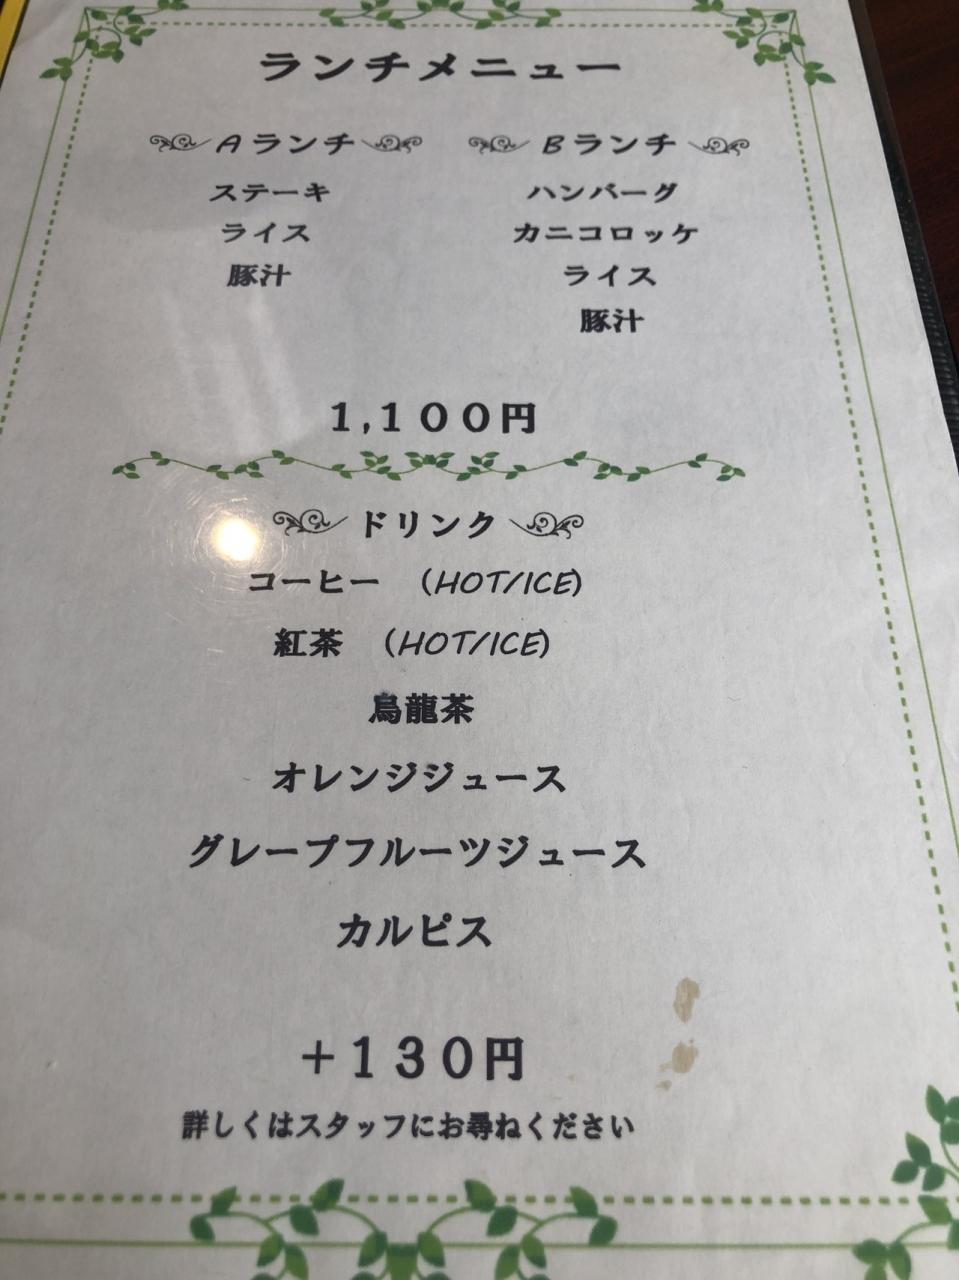 ランチメニュー
Aランチ
ステーキ
ライス
豚汁
Bランチ
ハンバーグ
カニコロッケ
ライス
豚汁
1,100円
ドリンク
コーヒー (HOT/ICE)
紅茶 (HOT/ICE)
烏龍茶
オレンジジュース
グレープフルーツジュース
カルピス
+130円
詳しくはスタッフにお尋ねください